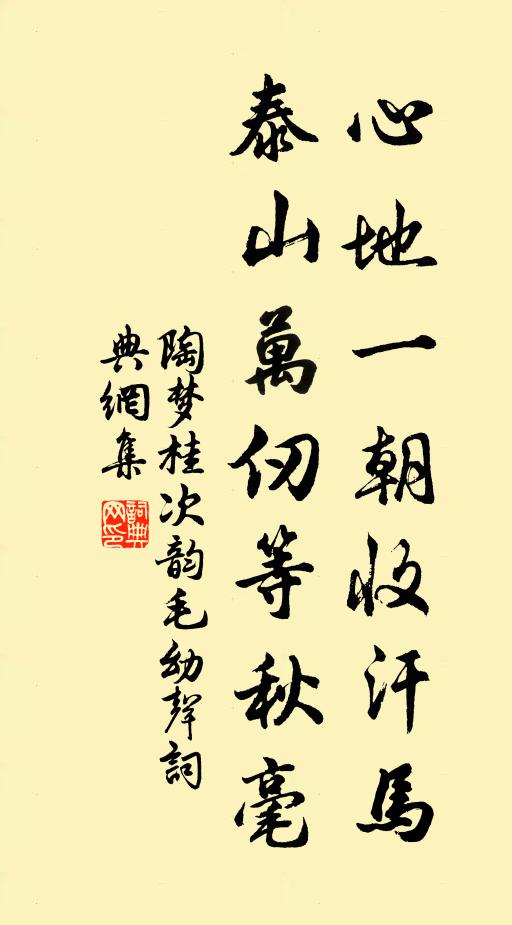 心地一朝收汗馬
泰山萬仞等秋毫
陶梦桂次韵毛幼聲詞
典網集
詞典網印